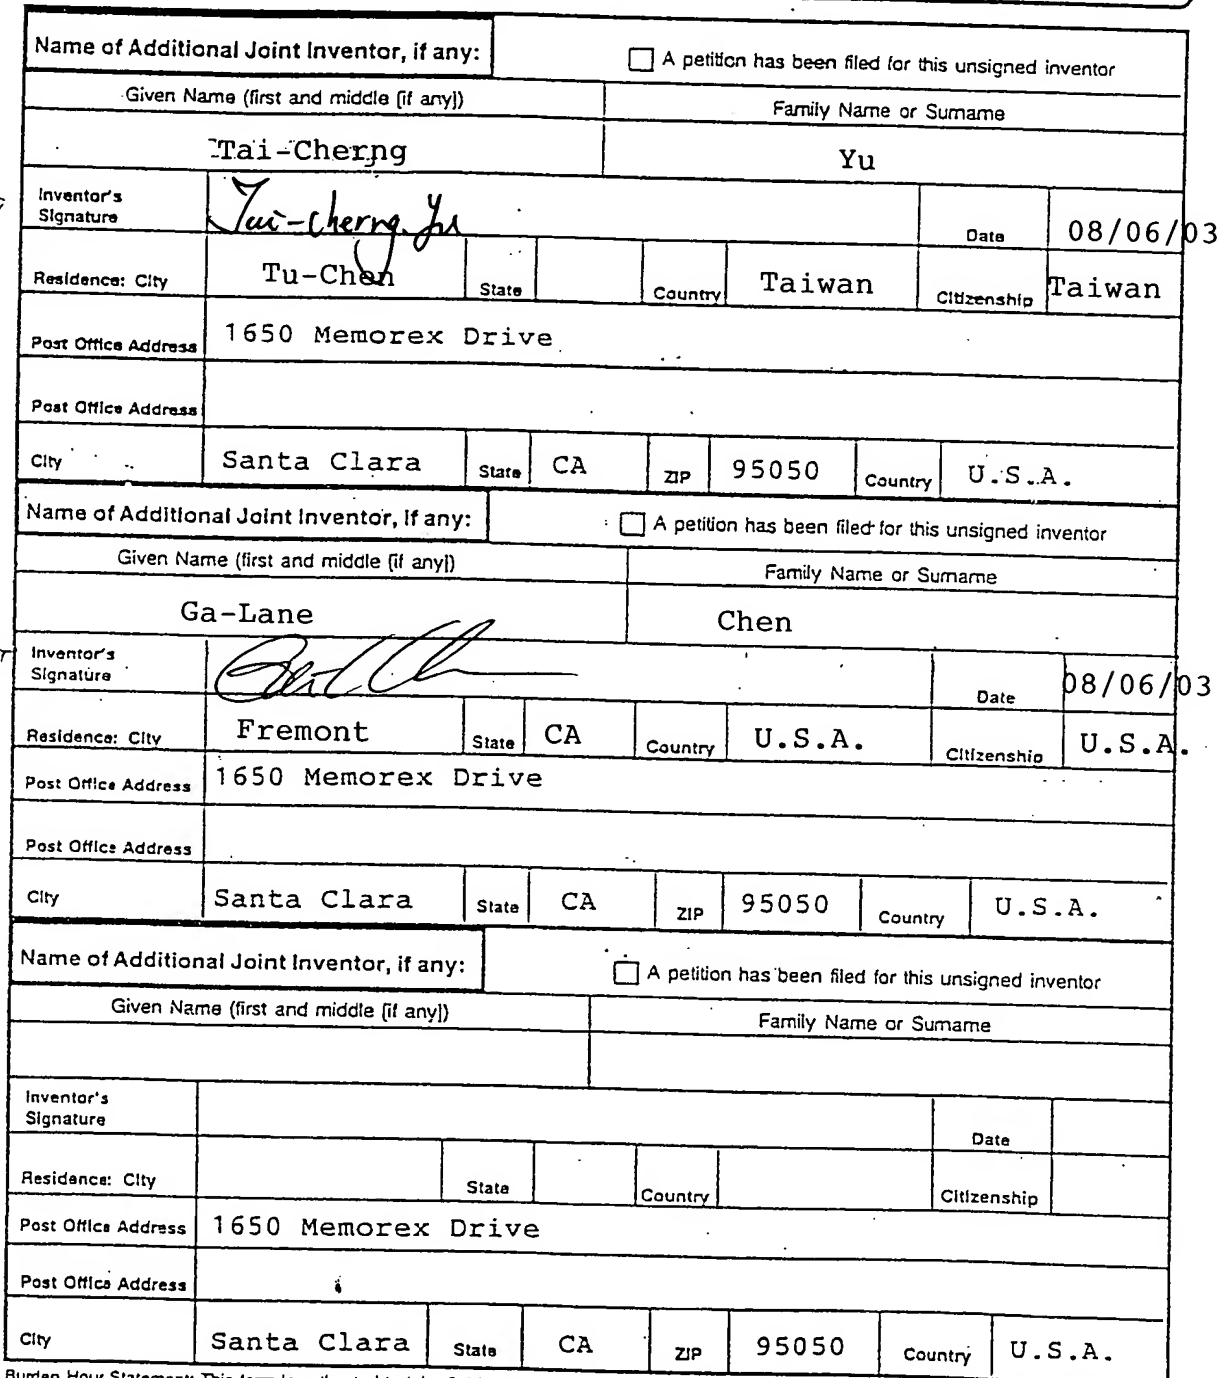 Name of Additional Joint Inventor, if any:
A petition has been filed for this unsigned inventor
Given Name (first and middle [if any])
Family Name or Surname
Tai-Cherng
Yu
Inventor's
Signature
Tai-cherng. Yu
Date
08/06/03
Residence: City
Tu-Chen
State
Country
Taiwan
Citizenship
Taiwan
Post Office Address
1650 Memorex Drive
Post Office Address
City
Santa Clara
State
CA
ZIP
95050
Country
U.S.A.
Name of Additional Joint Inventor, if any:
A petition has been filed for this unsigned inventor
Given Name (first and middle [if any])
Family Name or Surname
Ga-Lane
Chen
Inventor's
Signature
Date
08/06/03
Residence: City
Fremont
State
CA
Country
U.S.A.
Citizenship
U.S.A.
Post Office Address
1650 Memorex Drive
Post Office Address
City
Santa Clara
State
CA
ZIP
95050
Country
U.S.A.
Name of Additional Joint Inventor, if any:
A petition has been filed for this unsigned inventor
Given Name (first and middle [if any])
Family Name or Surname
Inventor's
Signature
Date
Residence: City
State
Country
Citizenship
Post Office Address
1650 Memorex Drive
Post Office Address
City
Santa Clara
State
CA
ZIP
95050
Country
U.S.A.
Burden Hour Statement: This form